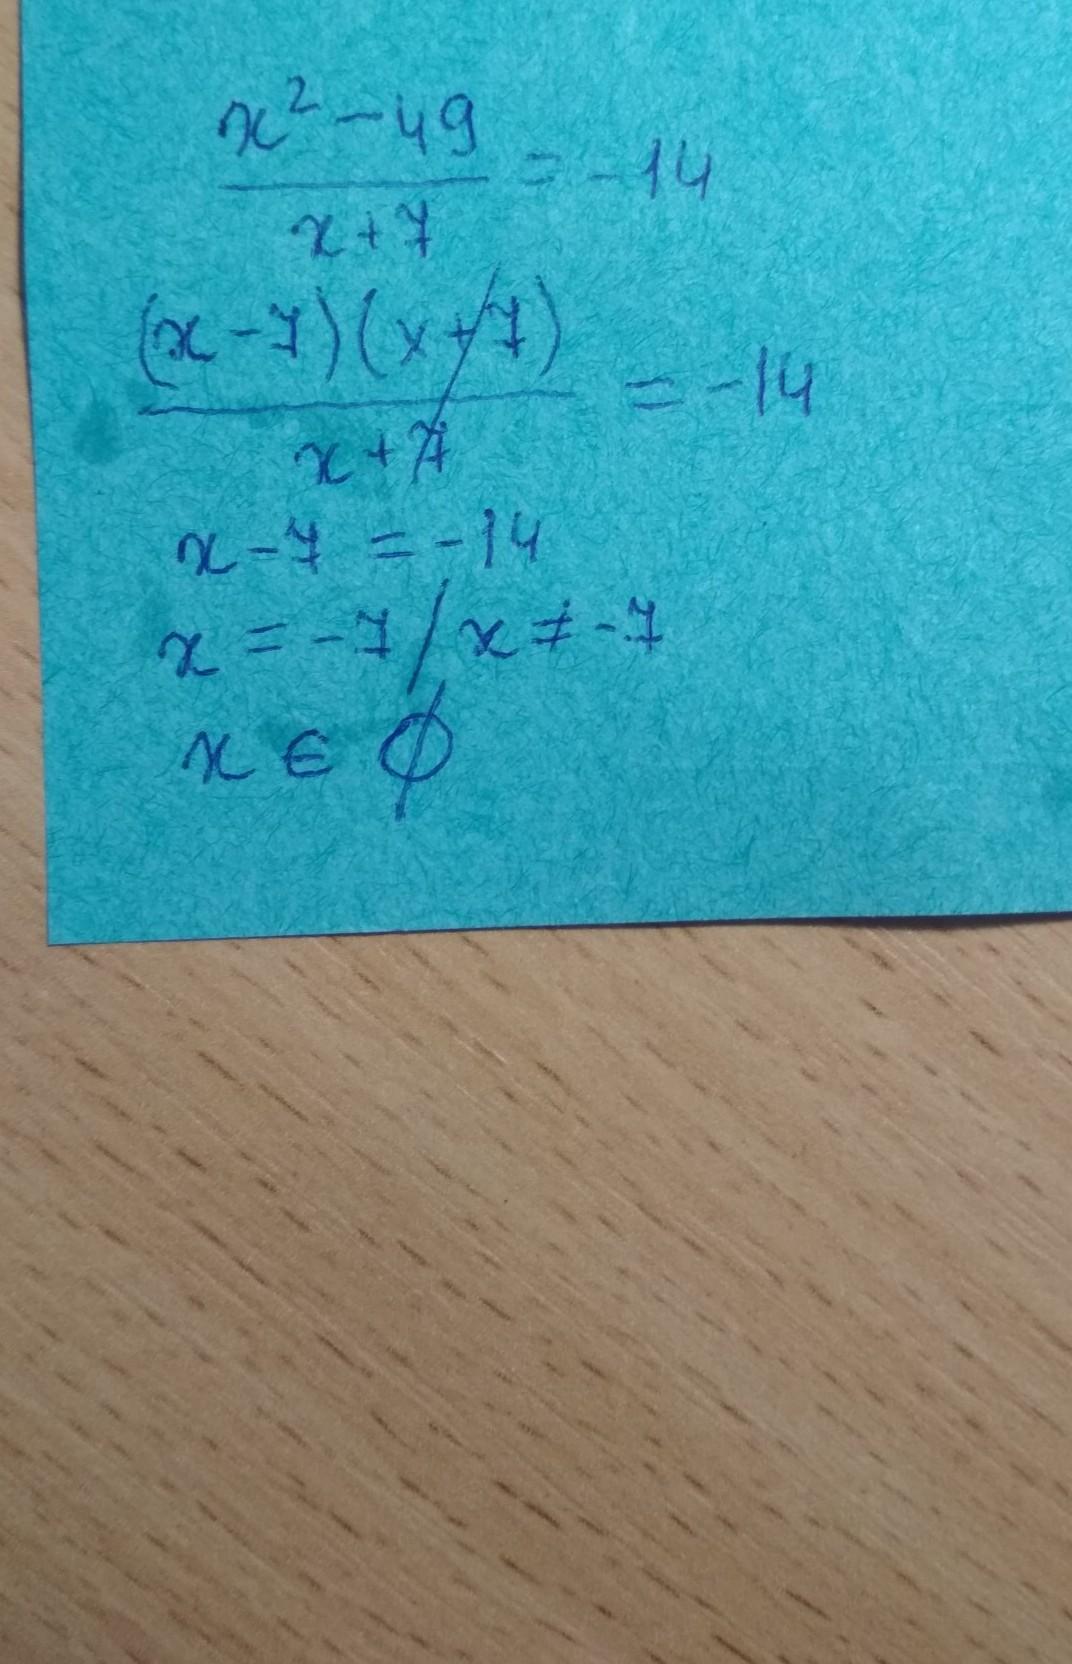 x² - 49 / x + 7 = -14
(x - 7)(x + 7) / x + 7 = -14
x - 7 = -14
x = -7 / x ≠ -7
x ∈ ∅